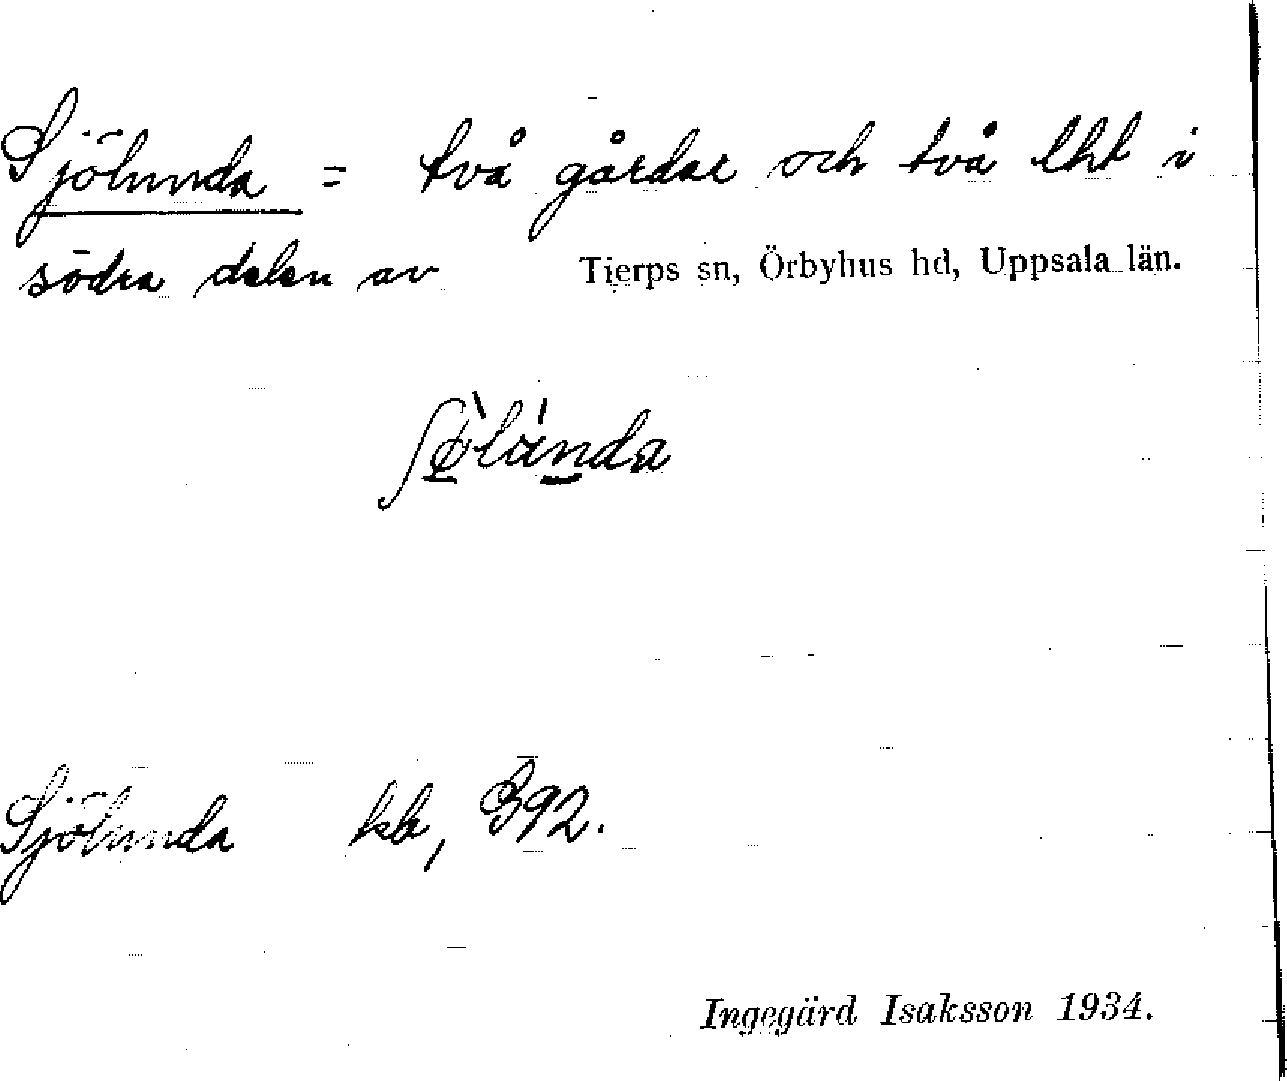 Sjölunda = två gårdar och två lht i
södra delen av Tierps sn, Örbyhus hd, Uppsala län.
ʃø̀lánda
Sjölunda kb, 392.
Ingegärd Isaksson 1934.